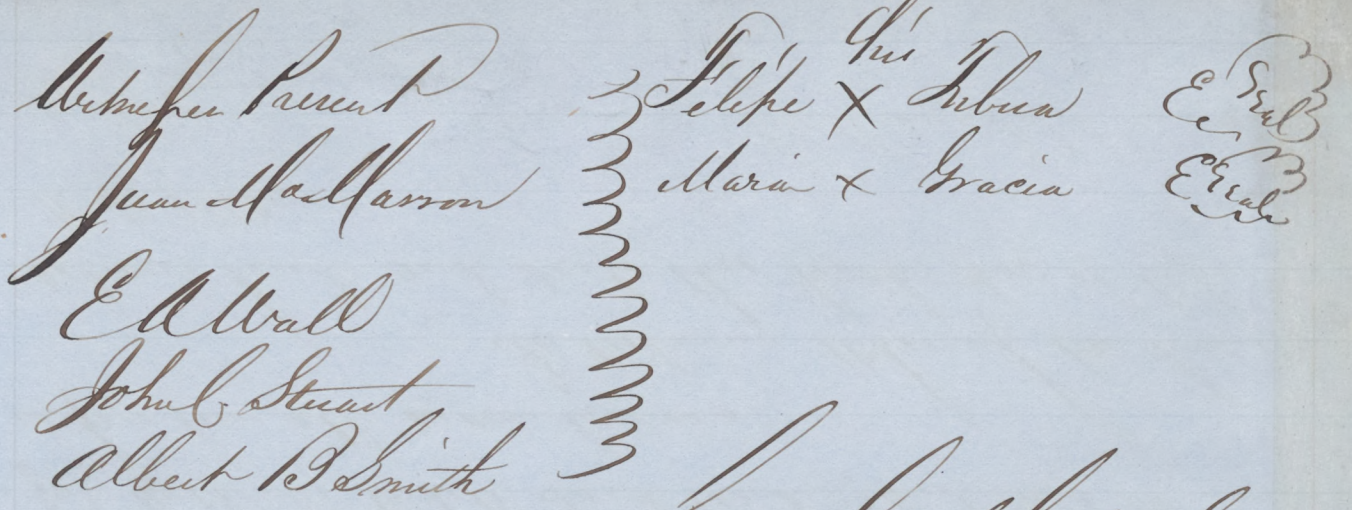 Witnesses Present
Juan Ma Marron
E A Wall
John C Stuart
Albert B Smith
his
Felipe X Tubua Seal
Maria X Gracia Seal